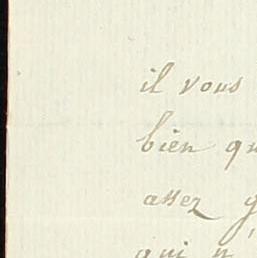 il vous
bien qu
assez g
qui n'